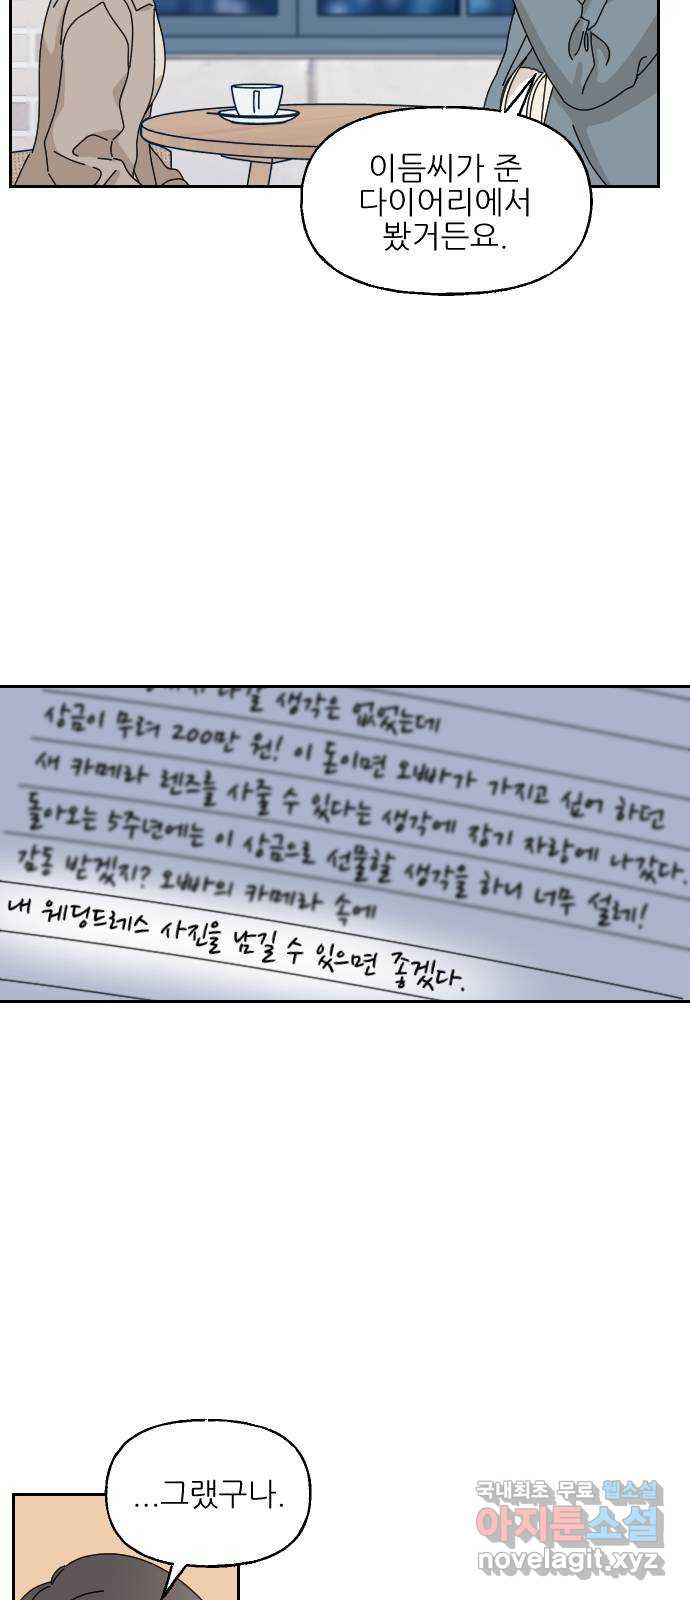 이듬씨가 준
다이어리에서
봤거든요.
나갈 생각은 없었는데
상금이 무려 200만 원! 이 돈이면 오빠가 가지고 싶어 하던
새 카메라 렌즈를 사줄 수 있다는 생각에 장기 자랑에 나갔다.
돌아오는 5주년에는 이 상금으로 선물할 생각을 하니 너무 설레!
감동 받겠지? 오빠의 카메라 속에
내 웨딩드레스 사진을 남길 수 있으면 좋겠다.
...그랬구나.
국내최초 무료 웹소설
아지툰소설
novelagit.xyz